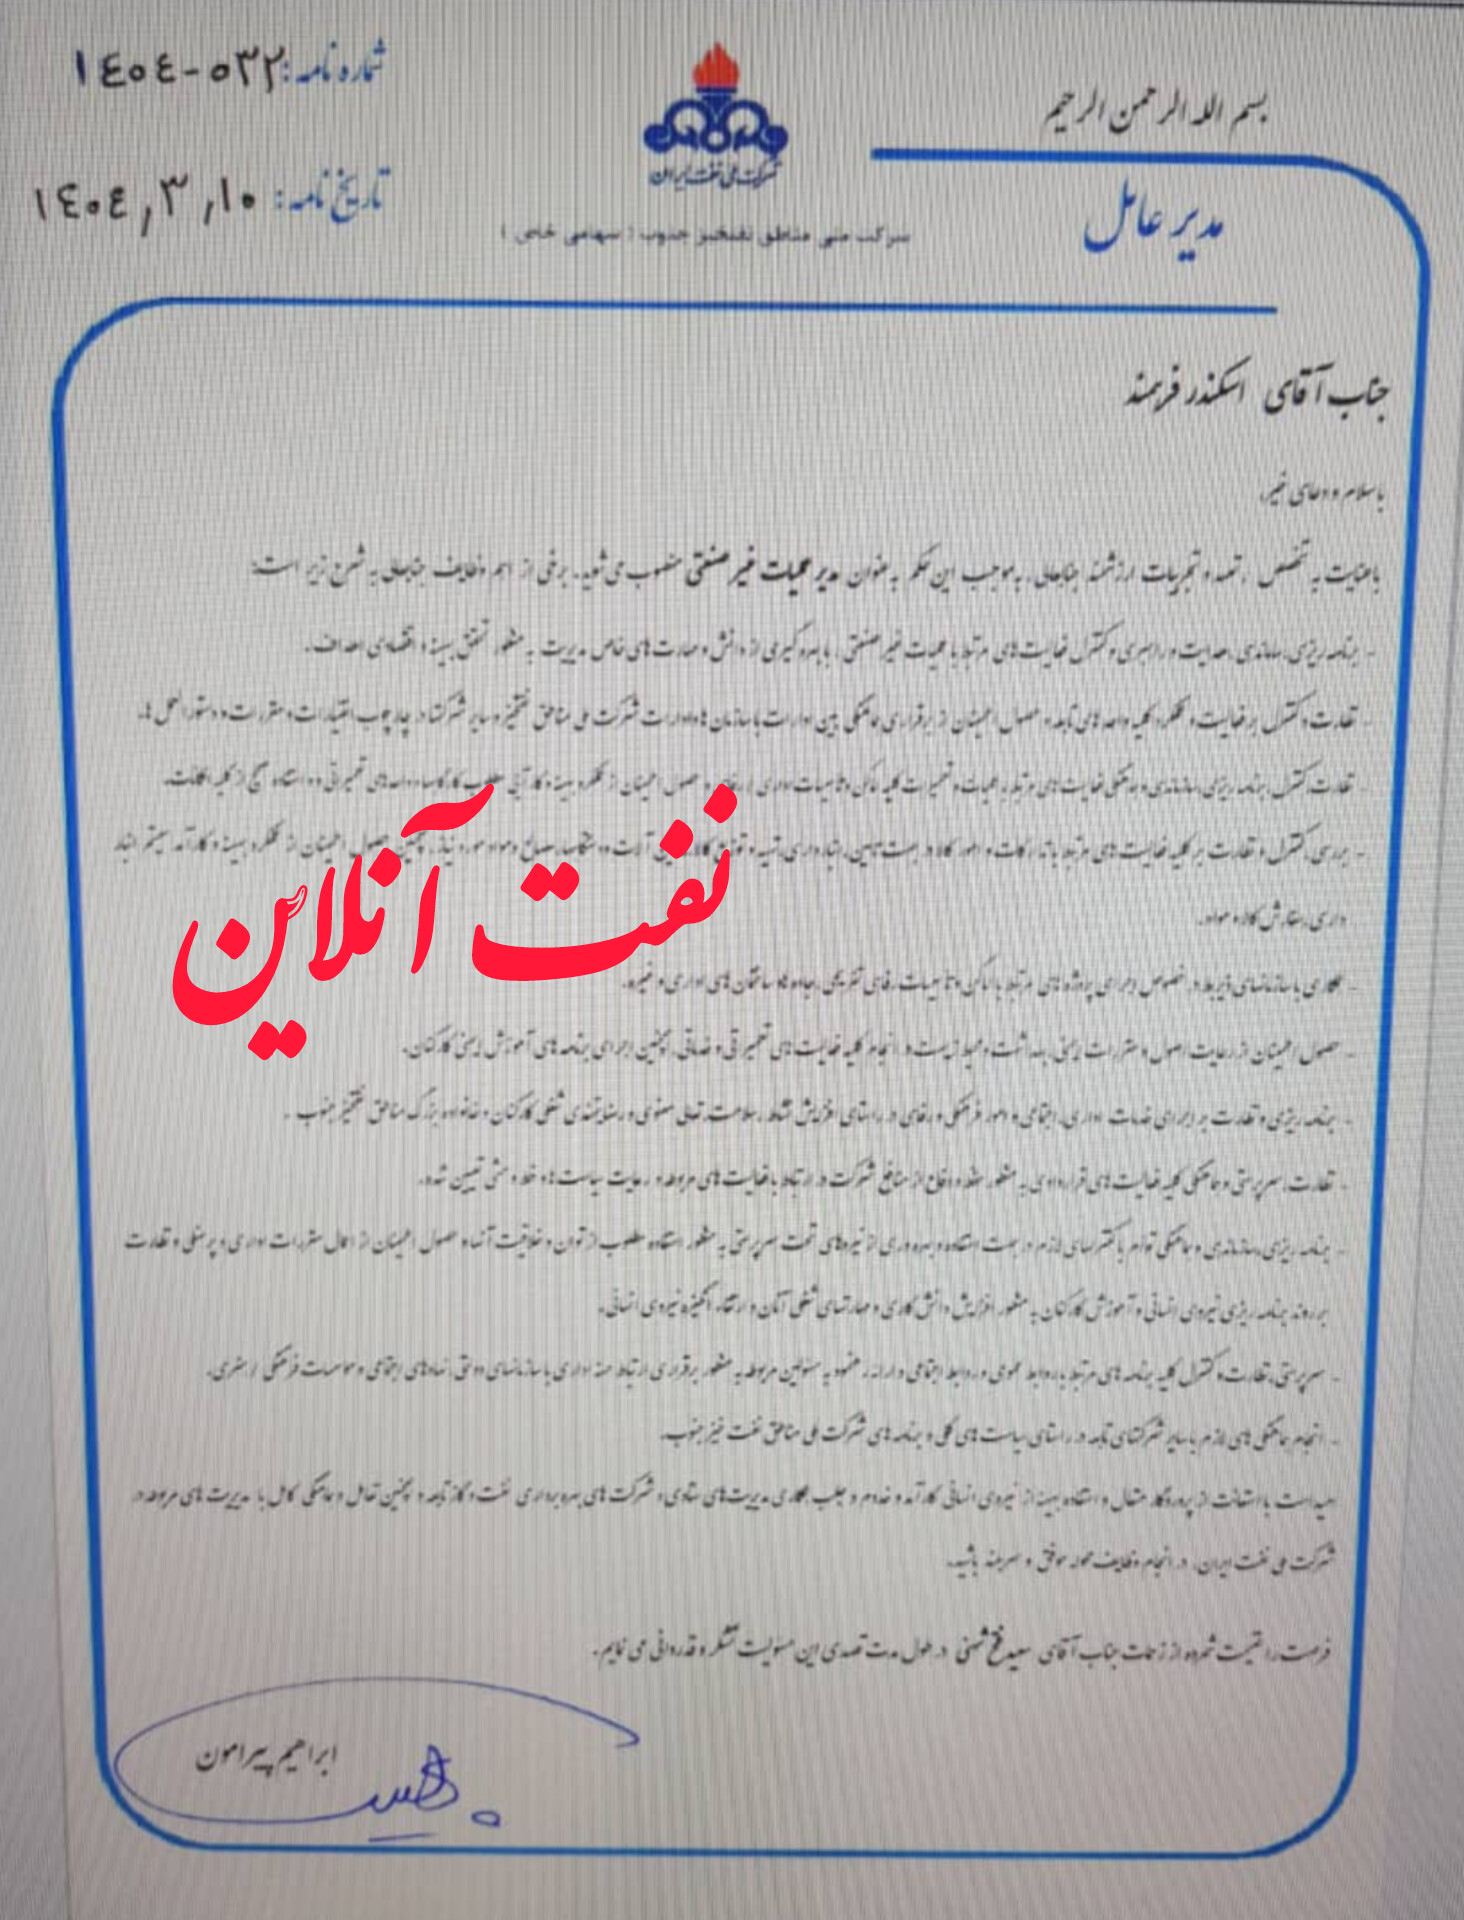 بسم الله الرحمن الرحیم
شماره نامه: ۱٤۰٤-۰۳۲
تاریخ نامه: ۱٤۰٤,۳,۱۰
شرکت ملی نفت ایران
مدیر عامل
شرکت ملی مناطق نفتخیز جنوب (سهامی خاص)
جناب آقای اسکندر فرهمند
با سلام و دعای خیر
با عنایت به تخصص، تعهد و تجربیات ارزشمند جنابعالی، به موجب این حکم به عنوان مدیر عملیات غیر صنعتی منصوب می شوید. برخی از اهم وظایف جنابعالی به شرح زیر است:
- برنامه ریزی، سازماندهی، هدایت و راهبری و کنترل فعالیت های مرتبط با عملیات غیر صنعتی، با بهره گیری از دانش و مهارت های خاص مدیریت به منظور تحقق بهینه و اقتصادی اهداف.
- نظارت و کنترل بر فعالیت و عملکرد کلیه واحدهای تابعه و حصول اطمینان از برقراری هماهنگی بین ادارات با سازمان ها و ادارات شرکت ملی مناطق نفتخیز و سایر شرکتها در چارچوب اختیارات و مقررات و دستورالعمل ها.
- نظارت، کنترل، برنامه ریزی، سازماندهی و هماهنگی فعالیت های مرتبط با عملیات و تعمیرات کلیه اماکن و تاسیسات اداری و حصول اطمینان از عملکرد بهینه و کارآیی مطلوب
- بررسی، کنترل و نظارت بر کلیه فعالیت های مرتبط با تدارکات و امور کالا در جهت تامین، انبارداری، تهیه و توزیع حصول اطمینان از عملکرد بهینه و کارآمد سیستم انبار
داری، سفارش کالا و مواد.
- همکاری با سازمانهای ذیربط در خصوص اجرای پروژه های مرتبط با اماکن و تاسیسات رفاهی تفریحی، جاده ها و ساختمان های اداری و غیره.
- حصول اطمینان از رعایت اصول و مقررات ایمنی، بهداشت و محیط زیست در انجام کلیه فعالیت های تعمیراتی و خدماتی، همچنین اجرای برنامه های آموزش ایمنی کارکنان.
- برنامه ریزی و نظارت بر اجرای خدمات اداری، اجتماعی و امور فرهنگی و رفاهی در راستای افزایش نشاط، سلامت، تعالی معنوی و رضایتمندی شغلی کارکنان و خانواده بزرگ مناطق نفتخیز جنوب.
- نظارت، سرپرستی و هماهنگی کلیه فعالیت های قراردادی به منظور حفظ و دفاع از منافع شرکت در ارتباط با فعالیت های مربوطه و رعایت سیاست ها و خط و مشی تعیین شده.
- برنامه ریزی، سازماندهی و هماهنگی توأم با کنترلهای لازم در جهت استفاده و بهره وری از نیروهای تحت سرپرستی به منظور استفاده مطلوب از توان و خلاقیت آنها و حصول اطمینان از اعمال مقررات اداری و پرسنلی و نظارت
بر روند برنامه ریزی نیروی انسانی و آموزش کارکنان به منظور افزایش دانش کاری و مهارتهای شغلی آنان و ارتقاء انگیزه نیروی انسانی.
- سرپرستی، نظارت و کنترل کلیه برنامه های مرتبط با روابط عمومی و روابط اجتماعی و ارائه رهنمود به مسئولین مربوطه به منظور برقراری ارتباط حسنه اداری با سازمانهای دولتی، نهادهای اجتماعی و موسسات فرهنگی / هنری.
- انجام هماهنگی های لازم با سایر شرکتهای تابعه در راستای سیاست های کلی و برنامه های شرکت ملی مناطق نفت خیز جنوب.
امید است با استعانت از پروردگار متعال و استفاده بهینه از نیروی انسانی کارآمد و خدوم و جلب همکاری مدیریت های ستادی و شرکت های بهره برداری نفت و گاز تابعه و همچنین تعامل و هماهنگی کامل با مدیریت های مربوطه در
شرکت ملی نفت ایران، در انجام وظایف محوله موفق و سربلند باشید.
فرصت را غنیمت شمرده از زحمات جناب آقای سعید فتح شهنی در طول مدت تصدی این مسئولیت تشکر و قدردانی می نمایم.
ابراهیم پیرامون
نفت آنلاین